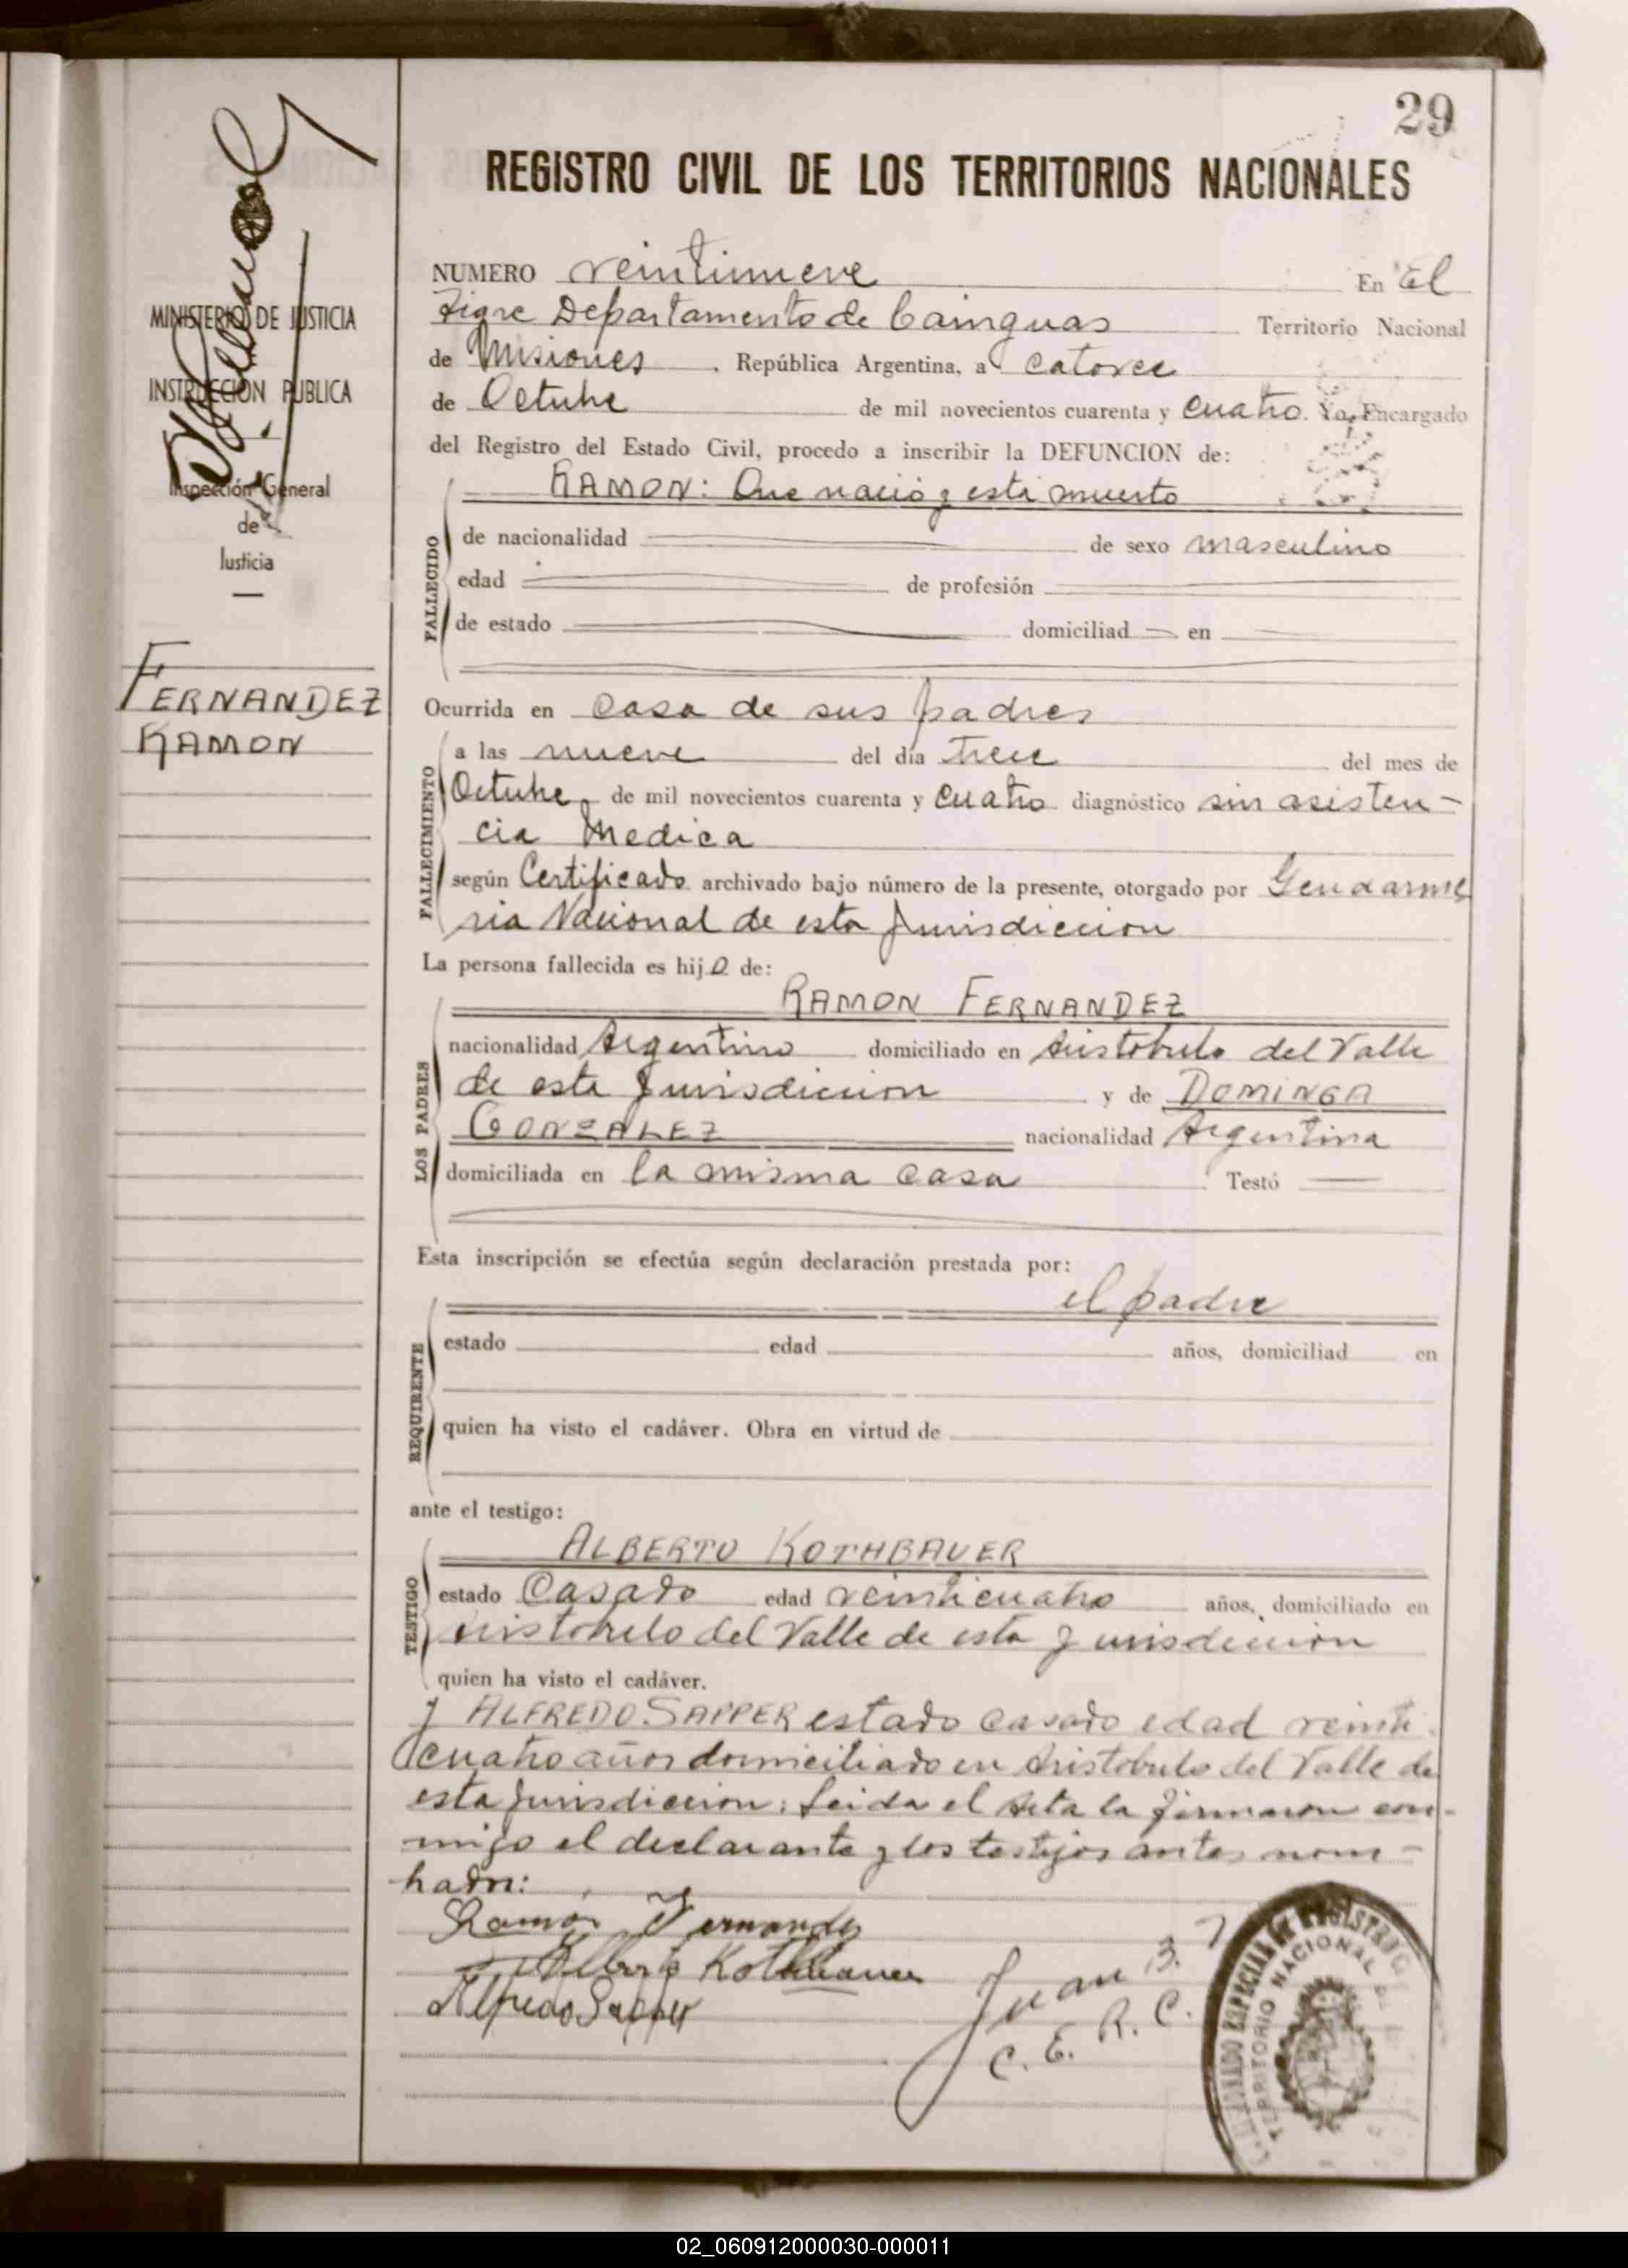 29
REGISTRO CIVIL DE LOS TERRITORIOS NACIONALES
MINISTERIO DE JUSTICIA
INSTRUCCION PUBLICA
Inspección General
de
Justicia
FERNANDEZ
RAMON
NUMERO veintinueve En El
Tigre Departamento de Cainguas Territorio Nacional
de Misiones. República Argentina, a catorce
de Octubre de mil novecientos cuarenta y cuatro. Yo, Encargado
del Registro del Estado Civil, procedo a inscribir la DEFUNCION de:
RAMON: Que nacio y esta muerto
FALLECIDO
de nacionalidad de sexo masculino
edad de profesión
de estado domiciliad en
Ocurrida en casa de sus padres
FALLECIMIENTO
a las nueve del día trece del mes de
Octubre de mil novecientos cuarenta y cuatro diagnóstico sin asisten-
cia Medica
según Certificado archivado bajo número de la presente, otorgado por Gendarme
ria Nacional de esta Jurisdiccion
La persona fallecida es hijo de:
LOS PADRES
RAMON FERNANDEZ
nacionalidad Argentino domiciliado en Aristobulo del Valle
de esta Jurisdicion y de DOMINGA
GONZALEZ nacionalidad Argentina
domiciliada en la misma casa Testó
Esta inscripción se efectúa según declaración prestada por:
el padre
REQUIRENTE
estado edad años, domiciliad en
quien ha visto el cadáver. Obra en virtud de
ante el testigo:
TESTIGO
ALBERTO KOTHBAUER
estado Casado edad veinticuatro años, domiciliado en
Aristobulo del Valle de esta Jurisdiccion
quien ha visto el cadáver.
y ALFREDO SAPPER estado casado edad veinti
cuatro años domiciliado en Aristobulo del Valle de
esta Jurisdiccion: Leida el Acta la firmaron con-
migo el declarante y los testigos antes nom-
brados:
Ramón Fernandez
Alberto Kothbauer
Alfredo Sapper
Juan B.
C. E. R. C.
ESPECIAL DE REGISTRO
TERRITORIO NACIONAL
02_060912000030-000011